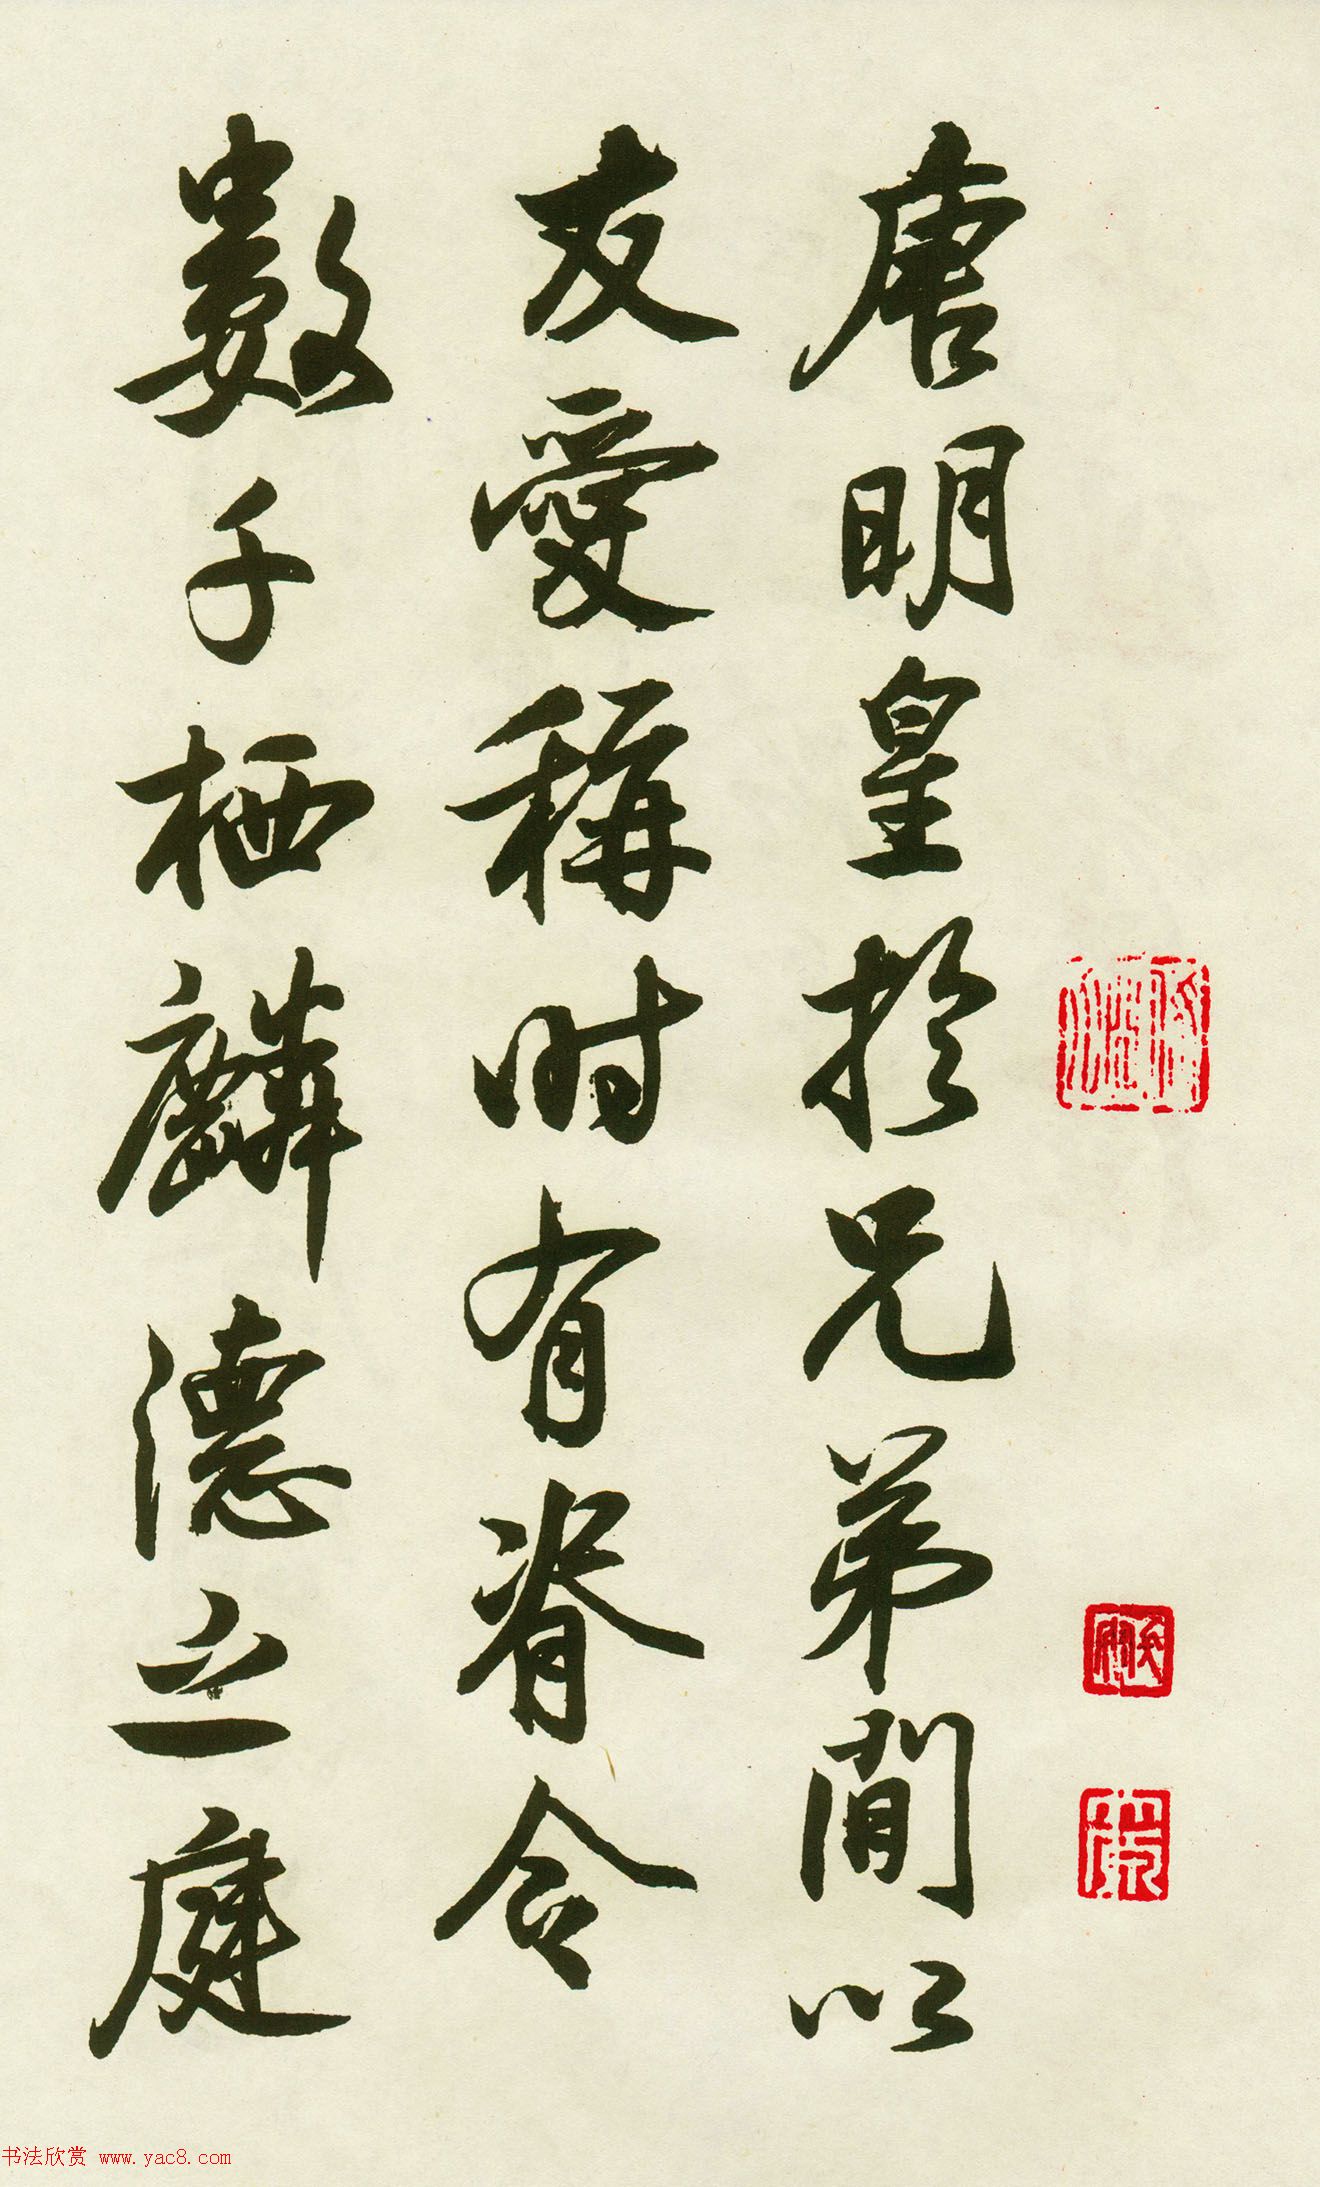 唐明皇於兄弟間以
友愛稱时有脊令
數千栖麟德之庭
书法欣赏 www.yac8.com